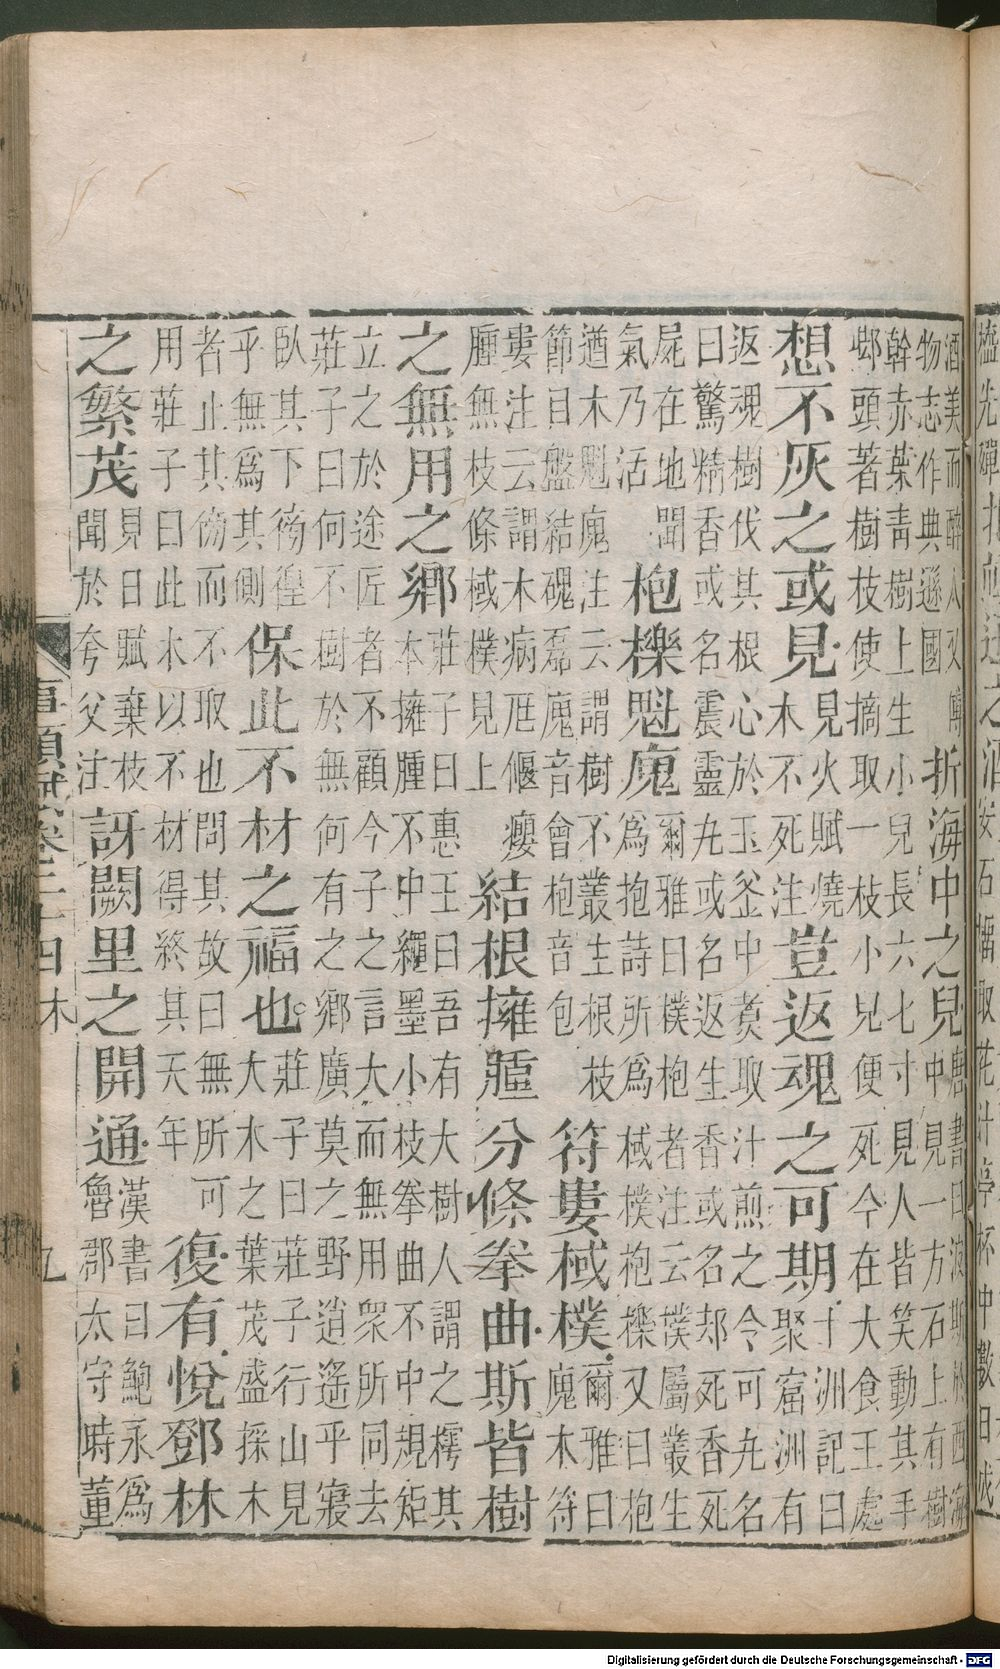 酒美而醉人又博
物志作典遜國
折海中之兒
唐書曰波斯於西海
中見一方石上有樹
幹赤葉靑樹上生小兒長六七寸見人皆笑動其手
頭著樹枝使摘取一枝小兒便死今在大食王處
想不灰之或見
見火賦燒
木不死注
豈返魂之可期
十洲記曰
聚窟洲有
返魂樹伐其根心於玉釜中煑取汁煎之令可丸名
曰驚精香或名震靈丸或名返生香或名却死香死
屍在地聞
氣乃活
枹櫟魁瘣
爾雅曰樸枹者注云樸屬叢生
爲抱詩所爲棫樸枹櫟又曰抱
遒木魁瘣注云謂樹不叢生根枝
節目盤結磈磊瘣音會枹音包
符婁棫樸
爾雅曰
瘣木符
婁注云謂木病尫傴癭
腫無枝條棫樸見上
結根擁腫分條拳曲斯皆樹
之無用之鄉
莊子曰惠王曰吾有大樹人謂之樗其
本擁腫不中繩墨小枝拳曲不中規矩
立之於途匠者不顧今子之言大而無用衆所同去
莊子曰何不樹於無何有之鄉廣莫之野逍遙乎寢
臥其下徬徨
乎無爲其側
保此不材之福也
莊子曰莊子行山見
大木之葉茂盛採木
者止其傍而不取也問其故曰無所可
用莊子曰此木以不材得終其天年
復有悅鄧林
之繁茂
見日賦棄枝
聞於夸父注
訝闕里之開通
漢書曰鮑永爲
魯郡太守時董
事類賦卷二十四 木
九